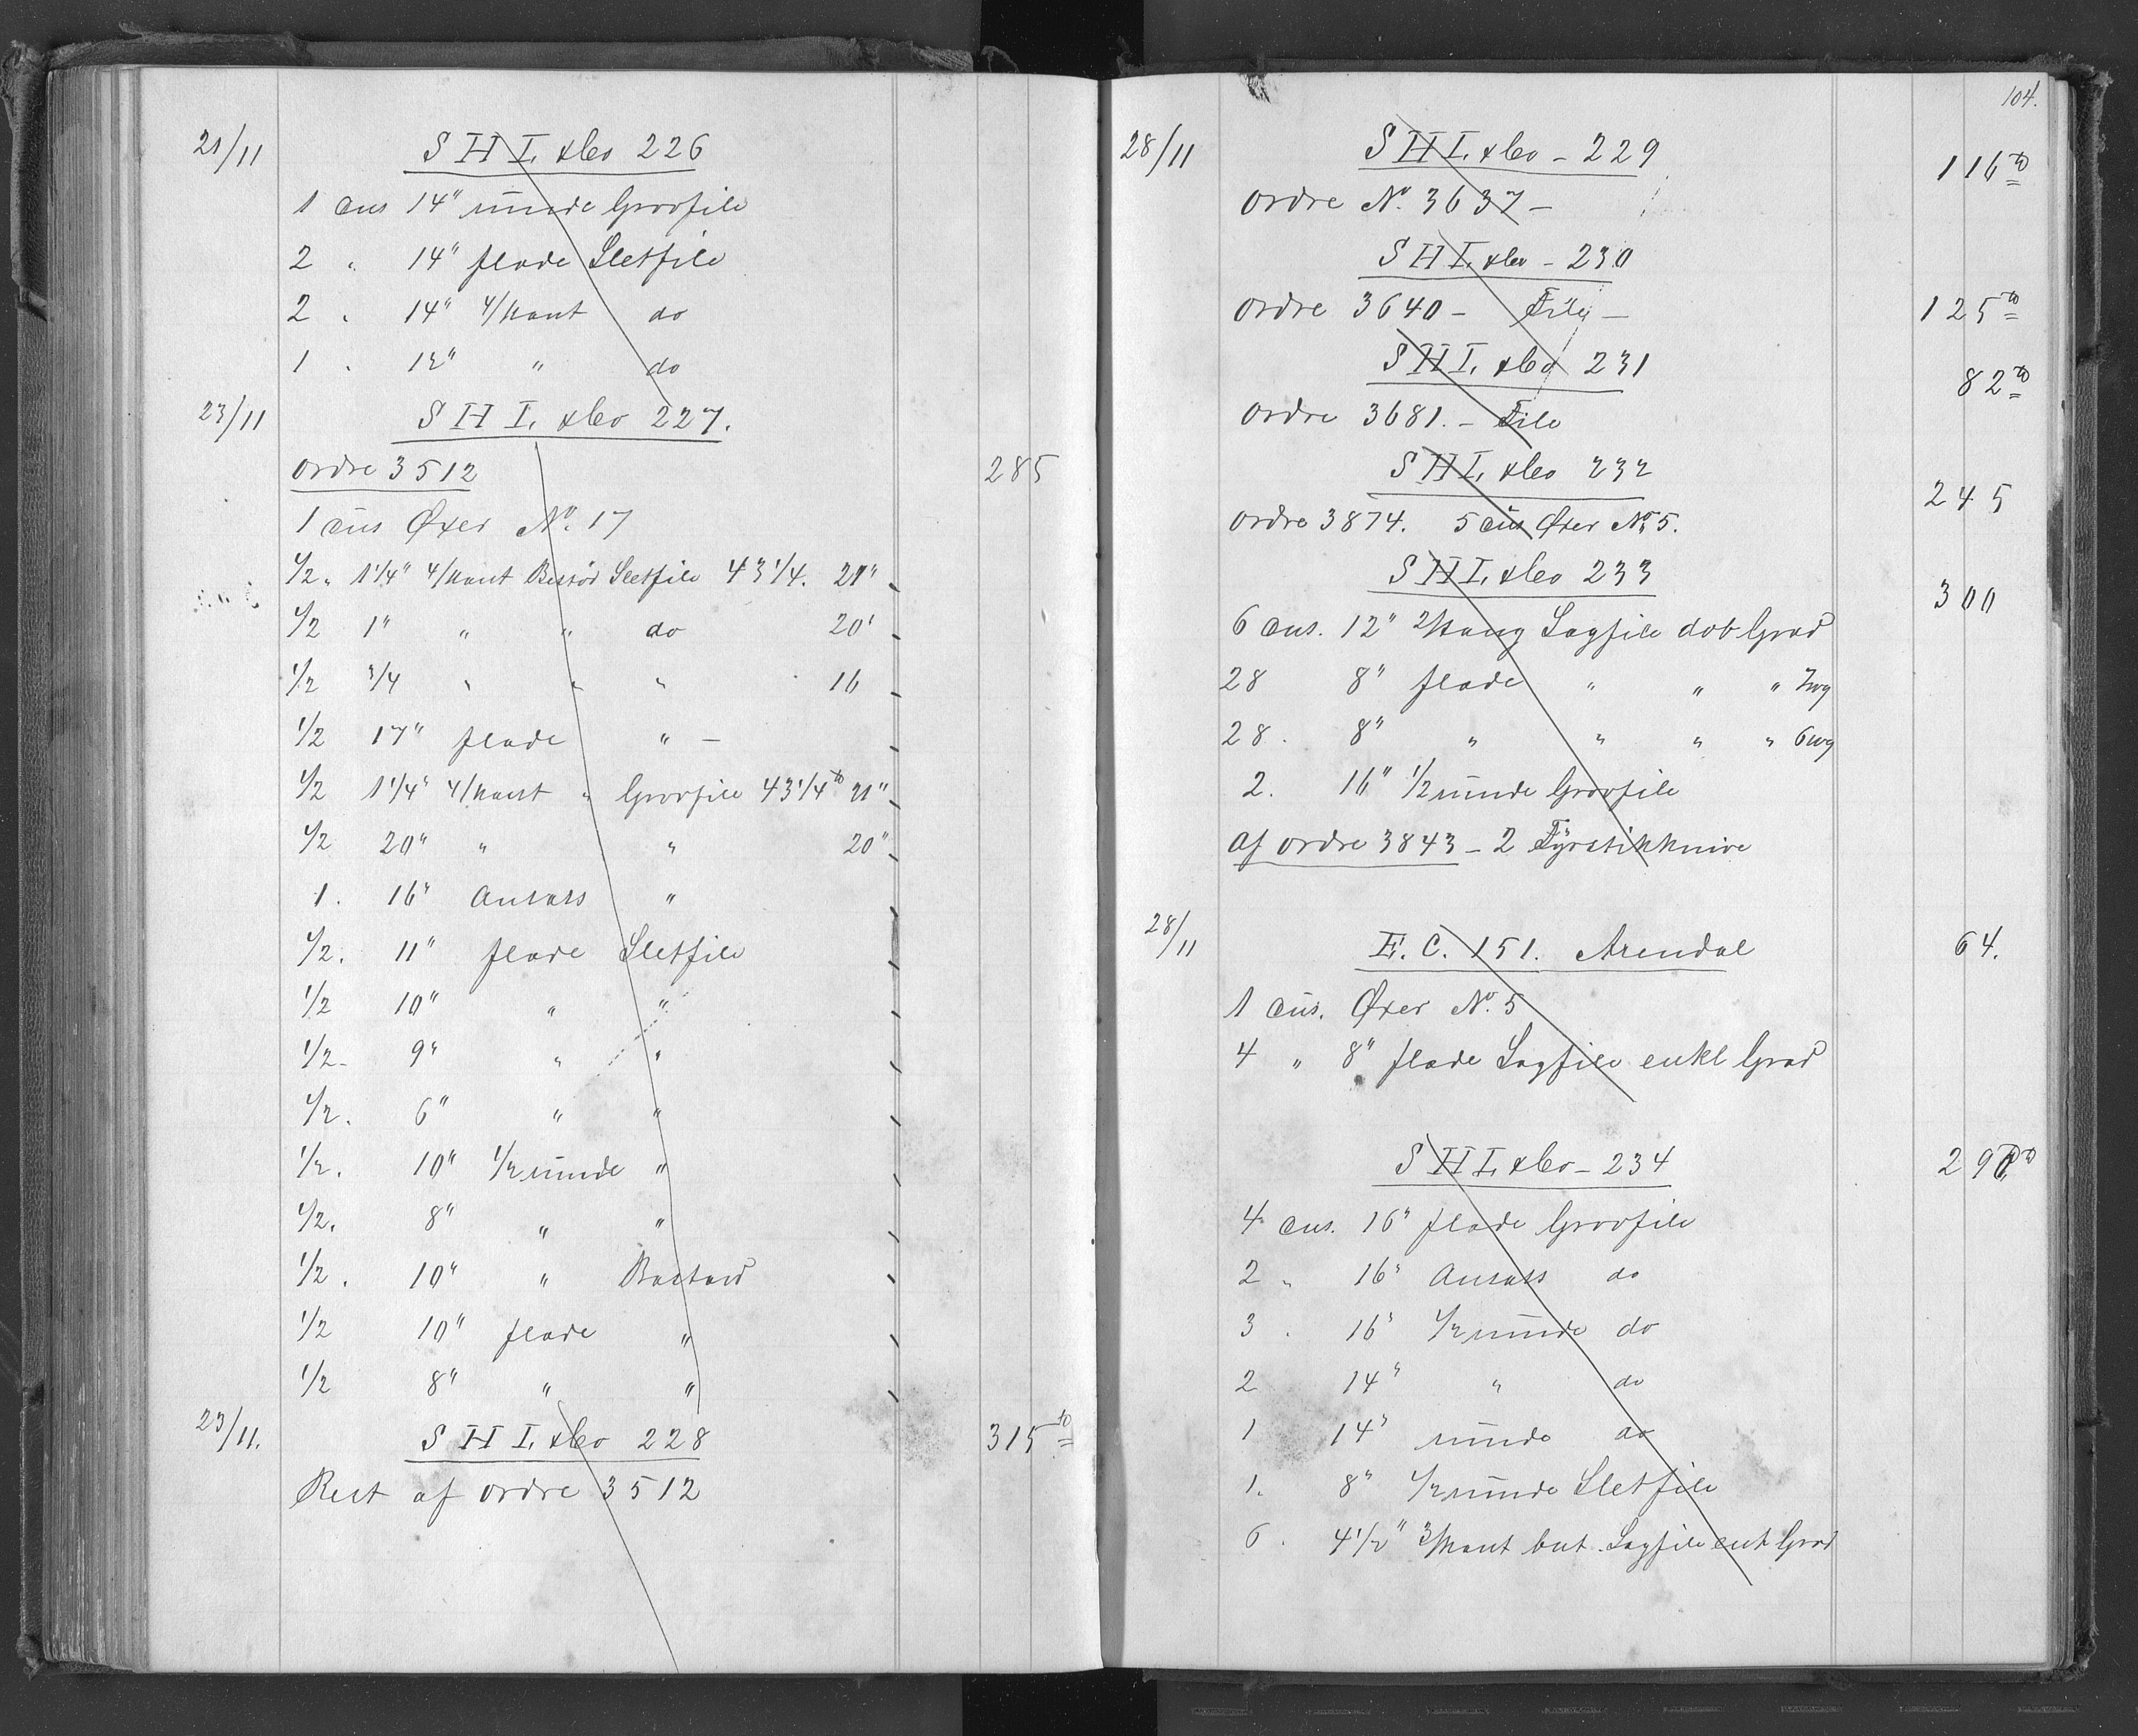 21/11 S H I. & Co 226
1 Dus 14" runde Grovfile
2 " 14" flade Sletfile
2 " 14" 4/kant do
1 " 12" " do
23/11 S H I. & Co 227.
Ordre 3512 285
1 Dus Øxer No. 17
1/2 " 1 1/4" 4/kant Sletfile 43 1/4. 21"
1/2 1" " " do 20"
1/2 3/4 " " " 16
1/2 17" flade " —
1/2 1 1/4" 4/kant " Grovfile 43 1/4 21"
1/2 20" " " 20"
1. 16" Ansats "
1/2. 11" flade Sletfile
1/2 10" " "
1/2 - 9" " "
1/2. 6" " "
1/2. 10" 1/2 runde "
1/2. 8" " "
1/2. 10" " Bastard
1/2 10" flade "
1/2 8" " "
23/11. S H I. & Co 228 315 to
Rest af Ordre 3512
104.
28/11 S H I. & Co - 229 116 to
Ordre No. 3637 -
S H I. & Co - 230
Ordre 3640 - File - 125 to
S H I. & Co 231 82 to
Ordre 3681. - File
S H I. & Co 232 245
Ordre 3874. 5 Dus Øxer No 5.
S H I. & Co 233 300
6 Dus. 12" 2/kang Sagfile dob Grad
28 8" flade " " " 7wg
28. 8" " " " " 6wg
2. 16" 1/2 runde Grovfile
Af Ordre 3843 - 2 Fyrstikknive
28/11 E. C. 151. Arendal 64.
1 Dus. Øxer No. 5
4 " 8" flade Sagfile enkl Grad
S H I. & Co - 234
4 Dus. 16" flade Grovfile
2 " 16" Ansats do
3 . 16" 1/2 runde do
2 14" " do
1 14" runde do
1. 8" 1/2 runde Sletfile
6 . 4 1/2" 3/kant but. Sagfile enk Grad